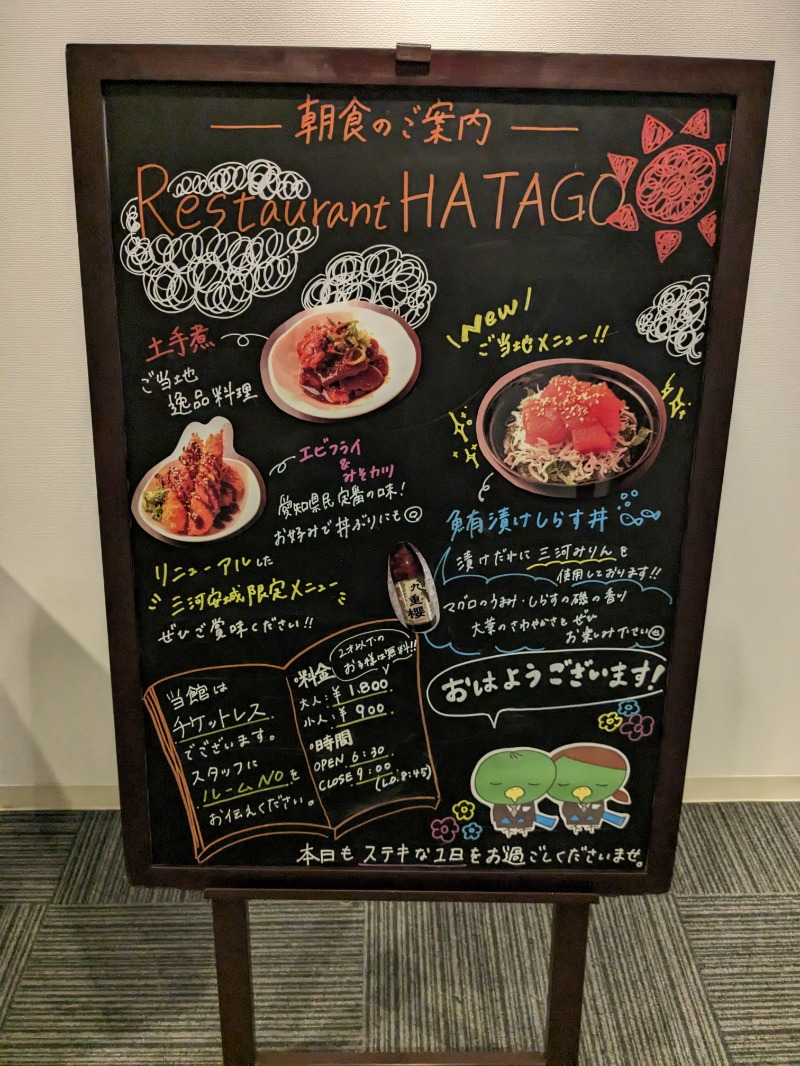 朝食のご案内
Restaurant HATAGO
土手煮
ご当地
逸品料理
New
ご当地メニュー!!
エビフライ
&
みそカツ
愛知県民定番の味!
お好みで丼ぶりにも◎
リニューアルした
三河安城限定メニュー
ぜひご賞味ください!!
鮪漬けしらす丼
漬けだれに三河みりんを
使用しております!!
マグロのうまみ・しらすの磯の香り
大葉のさわやかさをぜひ
お楽しみ下さい
九重櫻
おはようございます!
当館は
チケットレス
でございます。
スタッフに
ルームNOを
お伝えください。
2才以下の
お子様は無料!!
料金
大人:¥1.800
小人:¥900
時間
OPEN 6:30
CLOSE 9:00
(L.O. 8:45)
本日もステキな1日をお過ごしくださいませ。